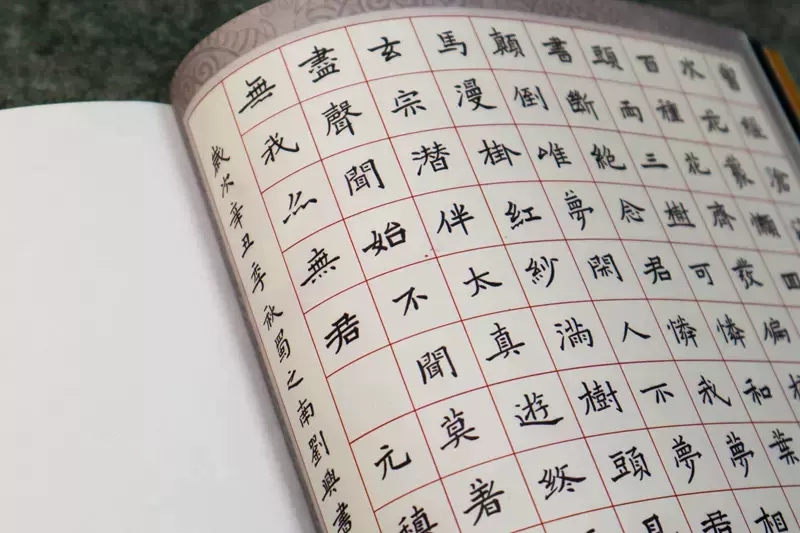 曾經滄
次花叢懶回
百種花齊發偏
頭兩三樹可憐和葉相
書斷絕念君憐我夢君
顛倒唯夢閑人不夢
馬漫掛紅紗滿樹頭
玄宗潛伴太真遊終
盡聲聞始不聞莫著
無我亦無君 元稹
歲次辛丑季秋蜀之南劉興書